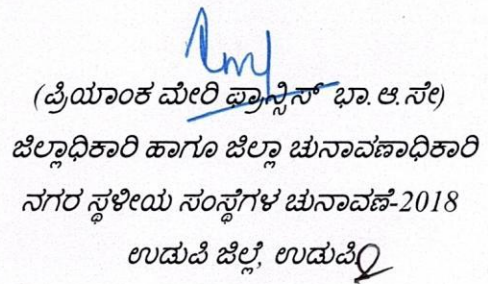 (ಪ್ರಿಯಾಂಕ ಮೇರಿ ಫ್ರಾನ್ಸಿಸ್ ಭಾ. ಆ. ಸೇ)
ಜಿಲ್ಲಾಧಿಕಾರಿ ಹಾಗೂ ಜಿಲ್ಲಾ ಚುನಾವಣಾಧಿಕಾರಿ
ನಗರ ಸ್ಥಳೀಯ ಸಂಸ್ಥೆಗಳ ಚುನಾವಣೆ-2018
ಉಡುಪಿ ಜಿಲ್ಲೆ, ಉಡುಪಿ